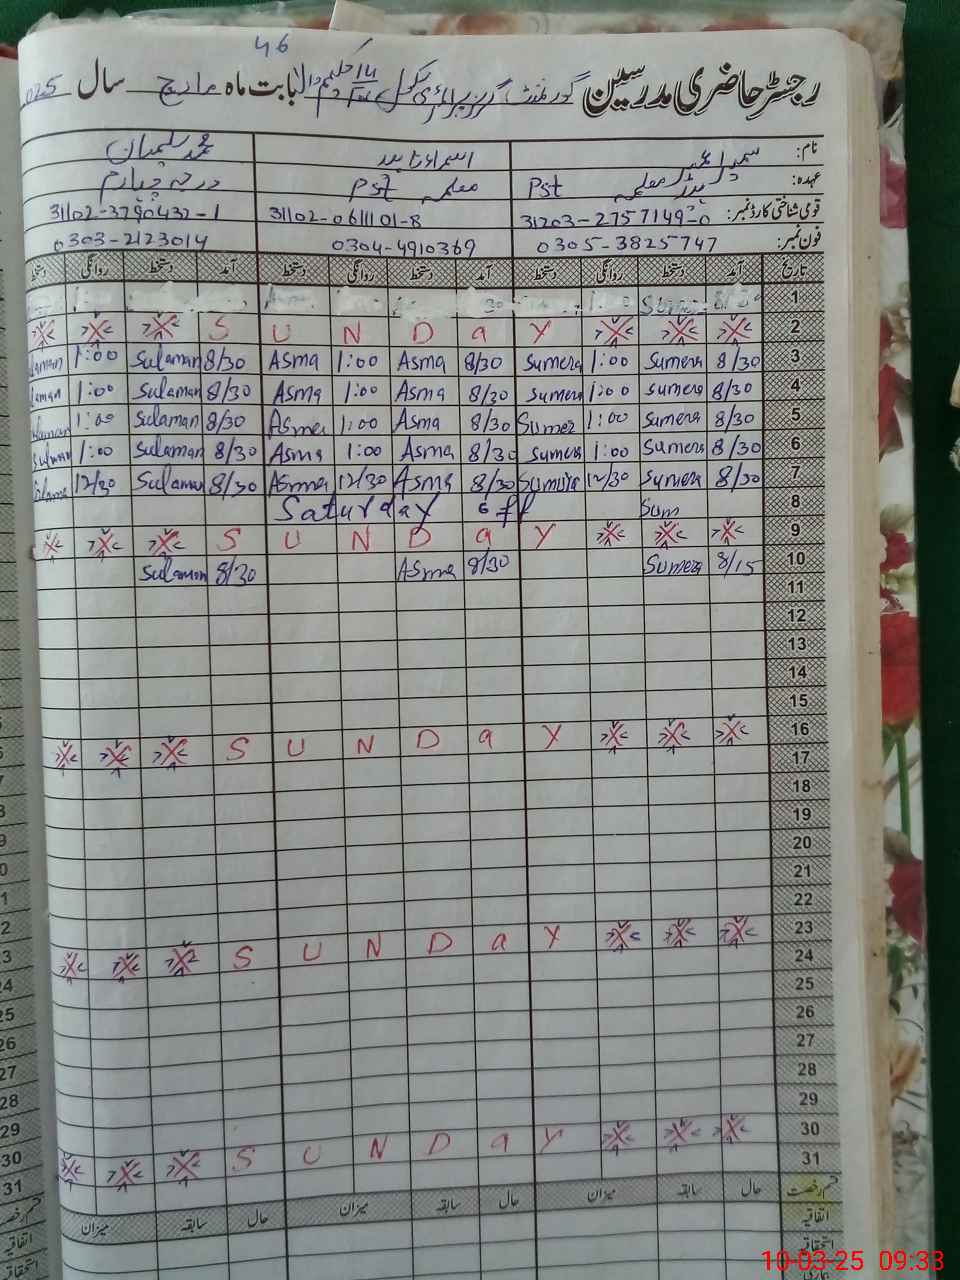 46
رجسٹر حاضری مدرسین گورنمنٹ گرلز پرائمری سکول بابت ماہ مارچ سال 025
نام: سمیرا اسماء محمد سلیمان
عہدہ: معلمہ Pst معلمہ Pst درجہ چہارم
قومی شناختی کارڈ نمبر: 31203-2757149-0 31102-0611101-8 31102-3790432-1
فون نمبر: 0305-3825747 0304-4910369 0303-2123014
تاریخ آمد دستخط روانگی دستخط آمد دستخط روانگی دستخط آمد دستخط روانگی دستخط
1 8/30 Sume 1:00 30 1:00
2 S U N D a Y
3 8/30 Sumera 1:00 Sumera 8/30 Asma 1:00 Asma 8/30 Sulaman 1:00 laman
4 8/30 Sumera 1:00 Sumera 8/30 Asma 1:00 Asma 8/30 Sulaman 1:00 laman
5 8/30 Sumera 1:00 Sumer 8/30 Asma 1:00 Asma 8/30 Sulaman 1:00 laman
6 8/30 Sumera 1:00 Sumera 8/30 Asma 1:00 Asma 8/30 Sulaman 1:00 Sulman
7 8/30 Sumera 12/30 Sumera 8/30 Asma 12/30 Asma 8/30 Sulaman 12/30
8 Saturday off Sum
9 S U N D a Y
10 8/15 Sumera 8/30 Asma 8/30 Sulaman
11
12
13
14
15
16 S U N D a Y
17
18
19
20
21
22
23 S U N D a Y
24
25
26
27
28
29
30 S U N D a Y
31
قسم رخصت حال سابقہ میزان حال سابقہ میزان حال سابقہ میزان
اتفاقیہ
استحقاقیہ
بیماری
10-03-25 09:33